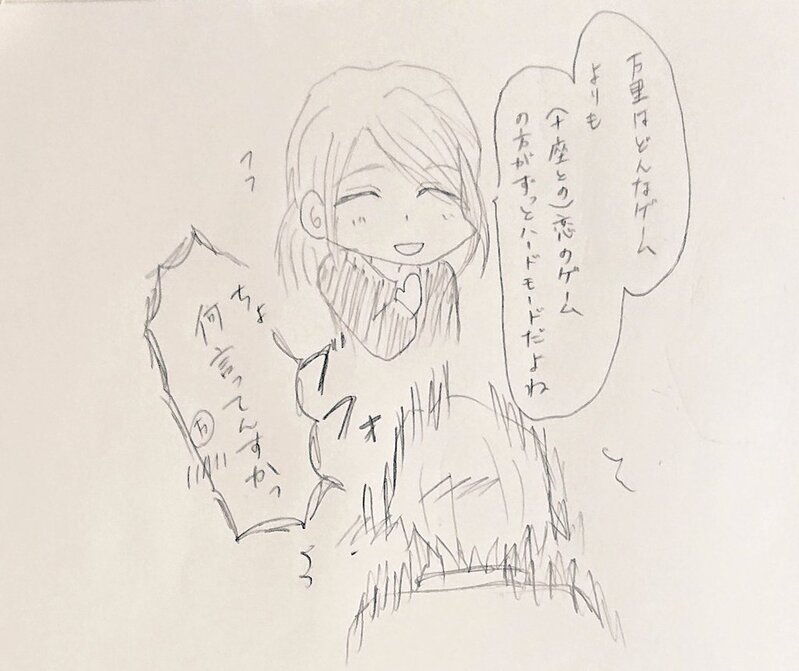 万里はどんなゲーム
よりも
(十座との)恋のゲーム
の方がずっとハードモードだよね
フフ
ちょ
何言ってんすかっ
万
ブフォ